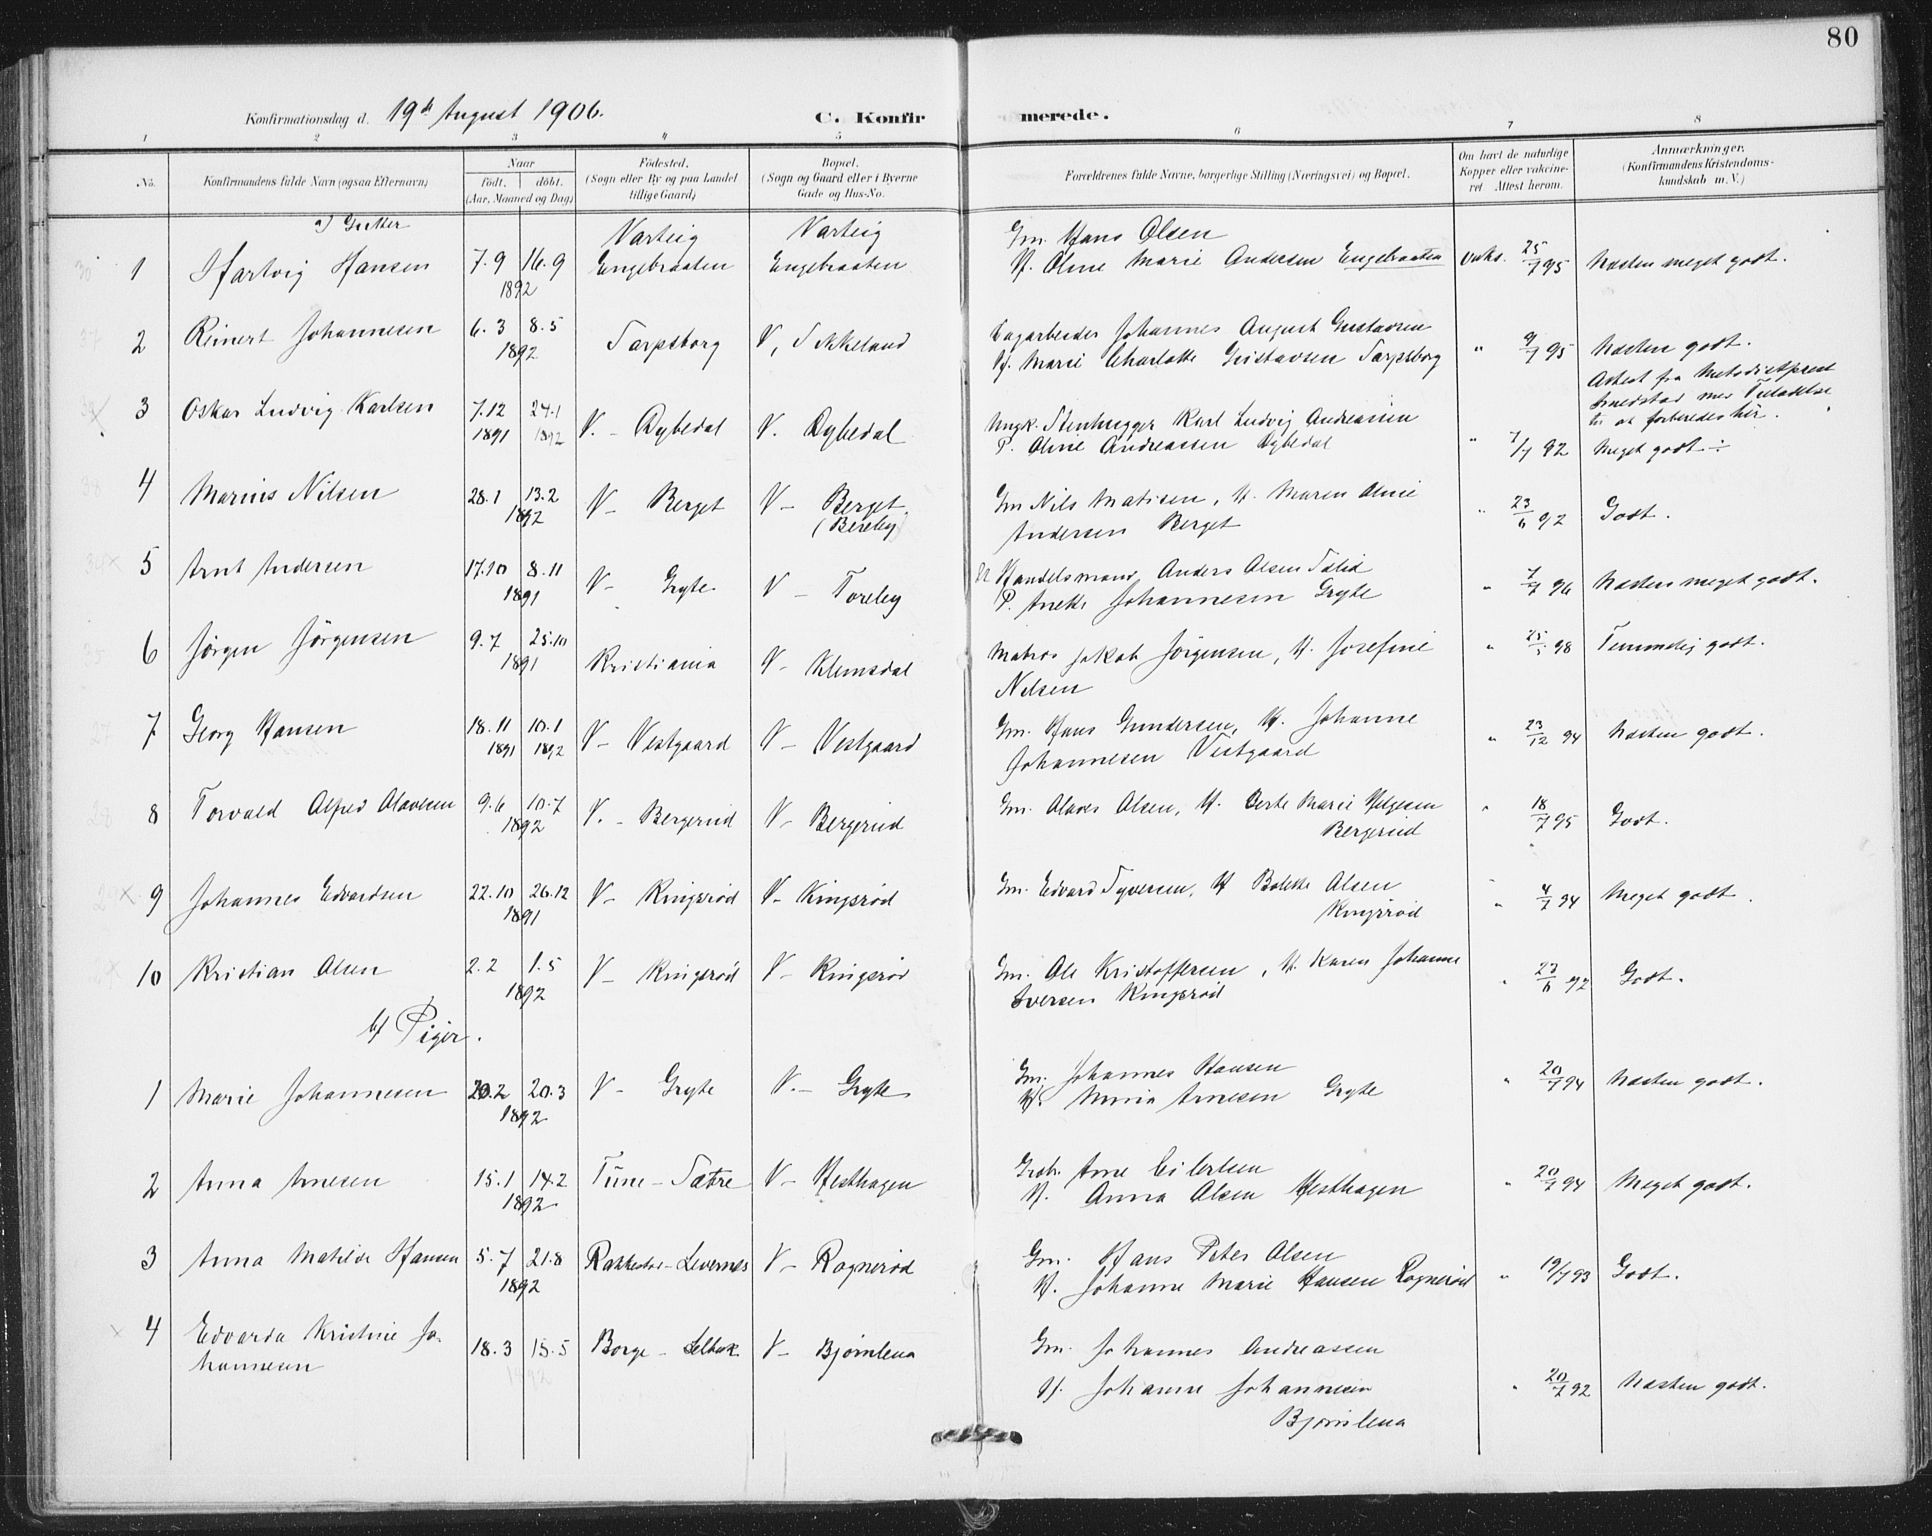 80
Konfirmationsdag d. 19de August 1906. C. Konfir merede.
1 2 3 4 5 6 7 8
No. Konfirmandens fulde Navn (ogsaa Efternavn)
Naar født. døbt. (Aar, Maaned og Dag)
Fødested. (Sogn eller By og paa Landet tillige Gaard)
Bopæl. (Sogn og Gaard eller i Byerne Gade og Hus-No.
Forældrenes fulde Navne, borgerlige Stilling (Næringsvei) og Bopæl.
Om havt de naturlige Kopper eller vakcineret. Attest herom.
Anmærkninger. (Konfirmandens Kristendomskundskab m. V.)
a) Gutter Varteig Varteig Gm. Hans Olsen
1 Hartvig Hansen 7.9 16.9 1892 Engebraaten Engebraaten H. Oline Marie Andersen Engebraaten vaks. 25/7 95 Næsten meget godt.
2 Reinert Johannesen 6.3 8.5 1892 Sarpsborg V, Sikkeland
Johannes August Gustavsen
H. Marie Charlotte Gustavsen Sarpsborg " 9/7 95 Næsten godt.
Attest fra Metodistprest
med Tilladelse
til at forberedes her.
3 Oskar Ludvig Karlsen 7.12 1891 24.1 1892 V. - Dybedal V. Dybedal Ungk. Stenhugger Karl Ludvig Andreassen
P. Oline Andreassen Dybedal " 7/7 92 Meget godt ÷
4 Marius Nilsen 28.1 13.2 1892 V - Berget V - Berget. (Bereby) Gm Nils Matisen, H. Maren Oline
Andersen Berget " 23/6 92 Godt.
5 Arnt Andersen 17.10 8.11 1891 V - Gryte V - Toreby Handelsmand Anders Olsen
P. Anette Johannesen Gryte " 7/7 96 Næsten meget godt.
6 Jørgen Jörgensen 9.7 25.10 1891 Kristiania V - Klemsdal Matros Jakob Jörgensen, H. Josefine
Nilsen " 98 Temmelig godt.
7 Georg Hansen 18.11 1891 10.1 1892 V - Vestgaard V - Vestgaard Gm. Hans Gundersen, H. Johanne
Johannesen Vestgaard " 23/12 94 Næsten godt.
8 Torvald Alfred Olavesen 9.6 10.7 1892 V. - Bergerud V - Bergerud Gm. Olaves Olsen, H. Berte Marie Helgesen
Bergerud " 18/7 95 Godt.
9 Johannes Edvardsen 22.10 26.12 1891 V - Ringsrød V - Ringsrød Gm. Edvard Syversen, H Bolette Olsen
Ringsrød " 4/7 94 Meget godt.
10 Kristian Olsen 2.2 1.5 1892 V - Ringsrød V - Ringsrød Gm. Ole Kristoffersen, H. Karen Johanne
Iversen Ringsrød " 23/6 92 Godt.
b) Piger.
1 Marie Johannesen 20.2 20.3 1892 V - Gryte V. - Gryte Gm. Johannes Hansen
H. Mina Arnesen Gryte " 20/7 94 Næsten godt.
2 Anna Arnesen 15.1 14.2 1892 Tune - Sætre V - Hesthagen Arne Eilertsen
H. Anna Olsen Hesthagen " 20/7 94 Meget godt.
3 Anna Matilde Hansen 5.7 21.8 1892 Rakkestad - Levernes V - Rognerød Gm. Hans Peter Olsen
H. Johanne Marie Hansen Rognerød " 19/7 93 Godt.
4 Edvarda Kristine Jo-
hannesen 18.3 15.5 1892 Borge - V - Bjørnlena Gm. Johannes Andreassen
H. Johanne Johannesen " 20/7 92 Næsten godt.
Bjørnlena